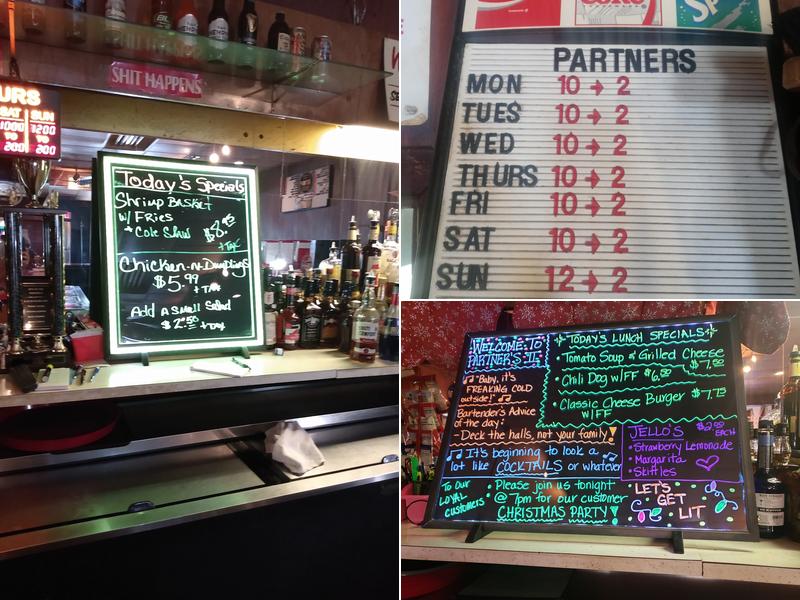 SHIT HAPPENS
URS
SAT SUN
1000 1200
TO TO
200 200
Today's Specials
Shrimp Basket
w/ Fries
* Cole Slaw $8.95
+ TAX
Chicken-N-Dumplings
$5.99
+ TAX
Add a small Salad
$2.50 + TAX
PARTNERS
MON 10 → 2
TUES 10 → 2
WED 10 → 2
THURS 10 → 2
FRI 10 → 2
SAT 10 → 2
SUN 12 → 2
WELCOME TO
PARTNER'S II
"Baby, it's
FREAKING COLD
outside!"
Bartender's Advice
of the day:
- Deck the halls, not your family!
It's beginning to look a
lot like COCKTAILS or whatever
TO OUR
LOYAL
customers
• Please join us tonight
@ 7pm for our customer
CHRISTMAS PARTY!
TODAY'S LUNCH SPECIALS
• Tomato Soup & Grilled Cheese
• Chili Dog w/FF
• Classic Cheese Burger
w/FF
JELLO'S
EACH
• Strawberry Lemonade
• Margarita
• Skittles
LET'S
GET
LIT